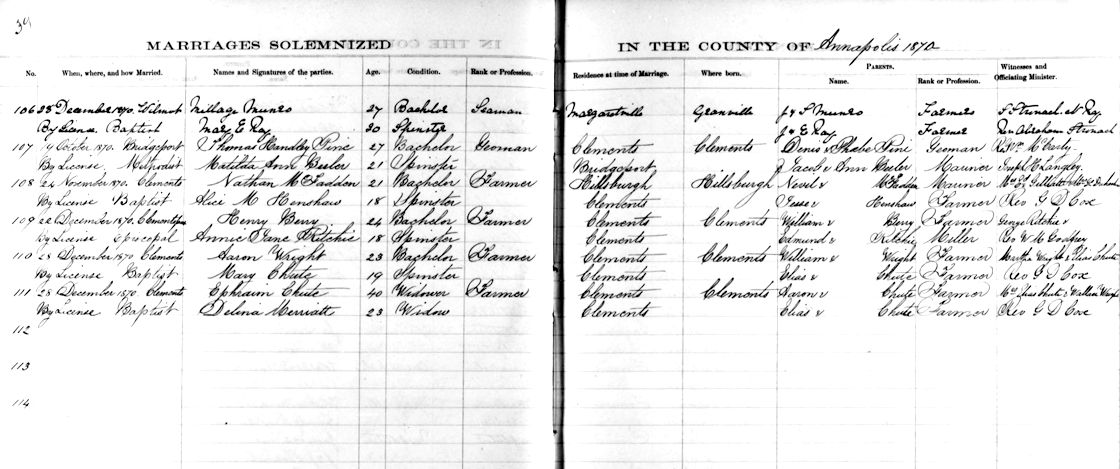 39
MARRIAGES SOLEMNIZED IN THE COUNTY OF Annapolis 1870
No. When, where, and how Married. Names and Signatures of the parties. Age. Condition. Rank or Profession. Residence at time of Marriage. Where born. PARENTS. Name. Rank or Profession. Witnesses and Officiating Minister.
106 28 December 1870. Wilmot Millage Munro 27 Bachelor Seaman Margaretville Granville J & S Munro Farmer S Stronach. N Ray
By License Baptist Mary E Ray 20 Spinster J & E Ray Farmer Rev Abraham Stronach
107 19 October 1870. Bridgeport Thomas Handley Pine 27 Bachelor Yeoman Clements Clements Denis & Phebe Pine Yeoman McCarty
By License Methodist Matilda Ann Beeler 21 Spinster Bridgeport Jacob & Ann Beeler Mariner Joseph H Langley
108 24 November 1870. Clements Nathan McFadden 21 Bachelor Farmer Hillsburgh Hillsburgh & McFadden Mariner
By License Baptist Alice M Henshaw 18 Spinster Clements Jesse & Henshaw Farmer Rev G D Cox
109 22 December 1870. Henry Berry 24 Bachelor Farmer Clements Clements William & Berry Farmer George Ritchie &
By License Episcopal Annie Jane Ritchie 18 Spinster Clements Edmund & Ritchie Miller Rev W M Godfrey
110 28 December 1870 Clements Aaron Wright 23 Bachelor Farmer Clements Clements William & Wright Farmer Martha Wright & Elias Chute
By License Baptist Mary Chute 19 Spinster Clements Elias & Chute Farmer Rev G D Cox
111 28 December 1870 Clements Ephraim Chute 40 Widower Farmer Clements Clements Aaron & Chute Farmer Mrs Elias Chute & Wallace
By License Baptist Delina Merriatt 23 Widow Clements Elias & Chute Farmer Rev G D Cox
112
113
114